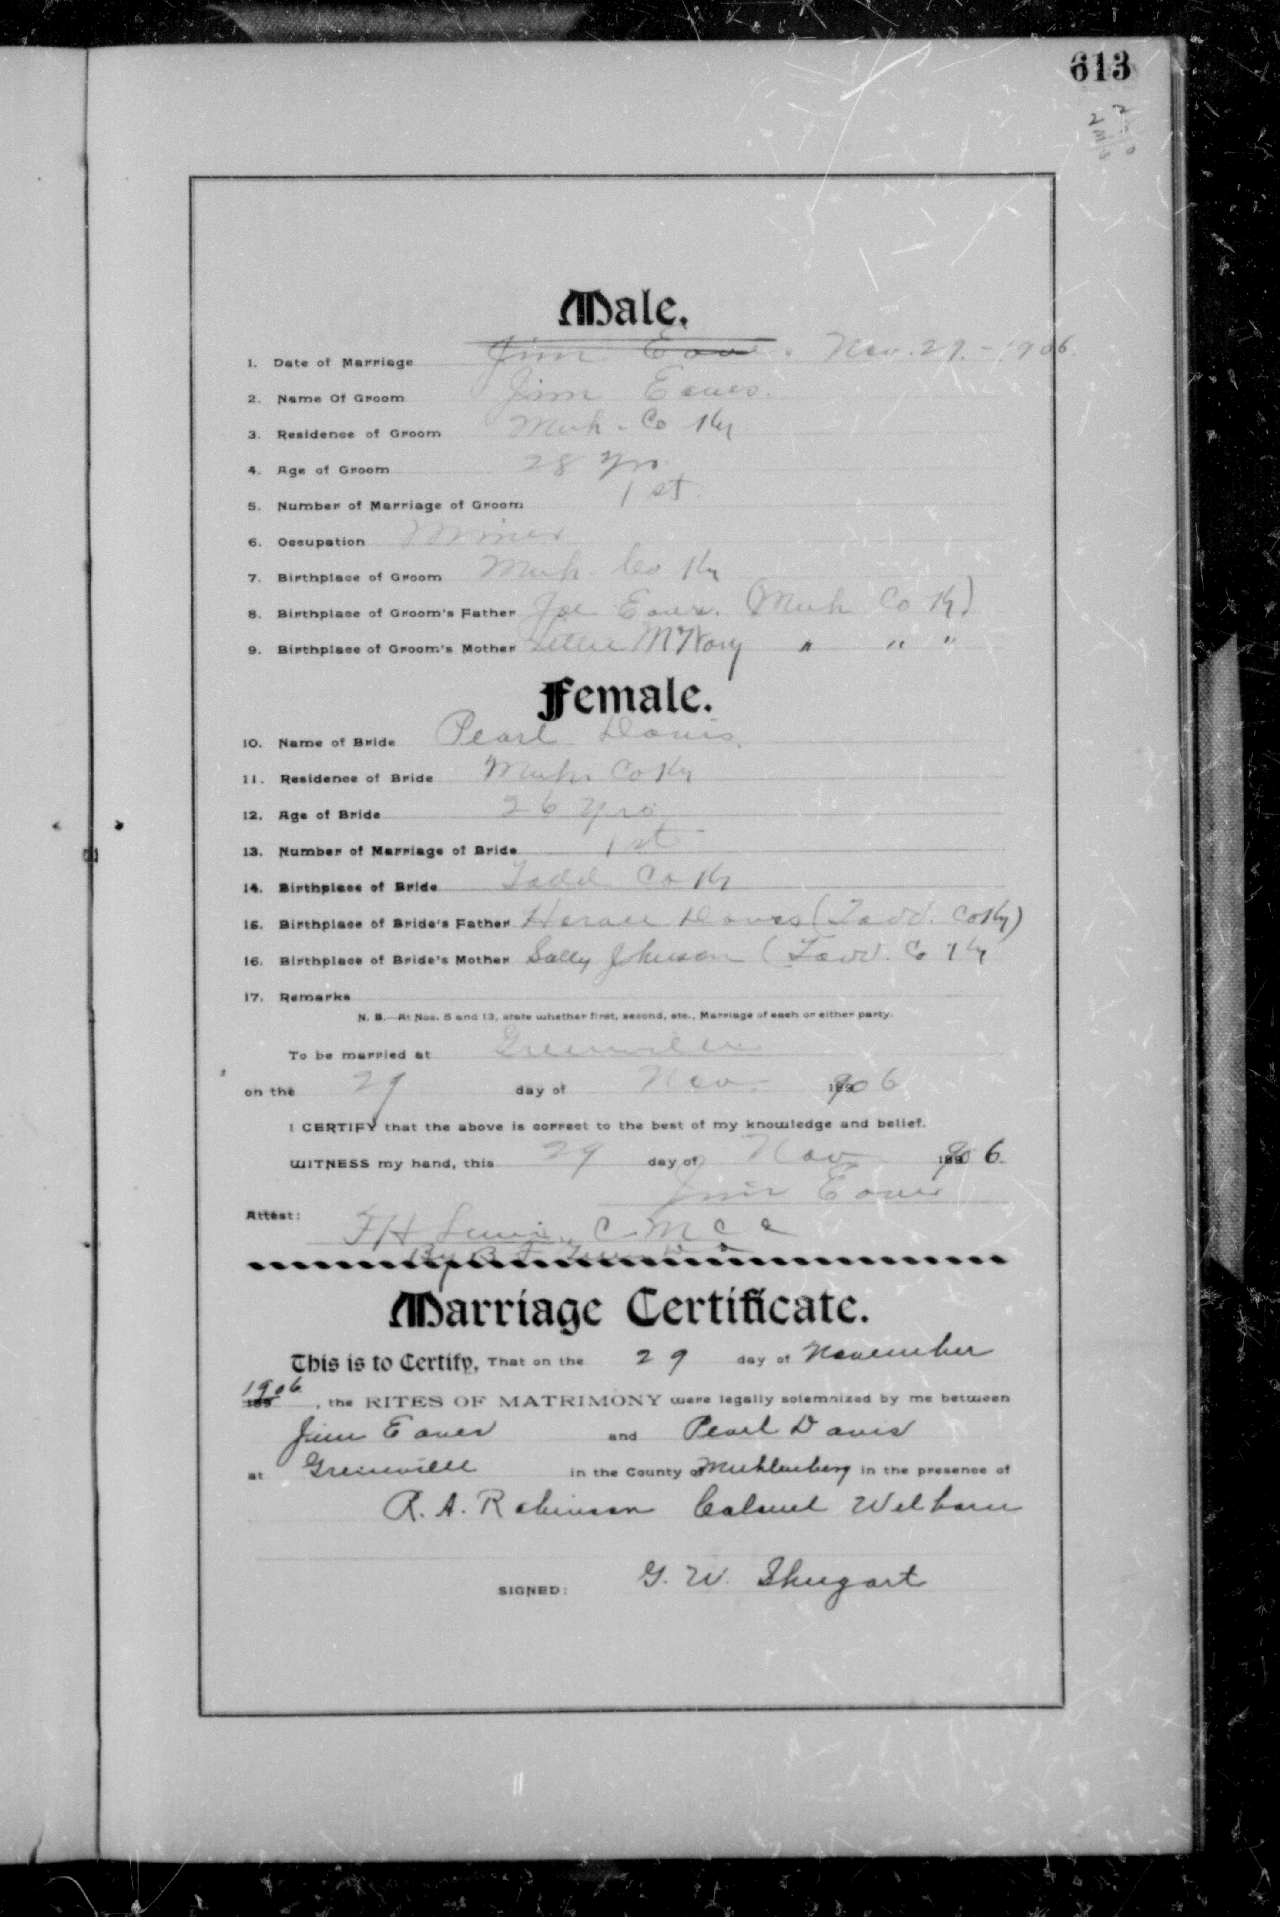 613
Male.
1. Date of Marriage Jim Eaves. Nov. 29. - 1906.
2. Name Of Groom Jim Eaves.
3. Residence of Groom Muh. Co Ky
4. Age of Groom 28 yrs.
5. Number of Marriage of Groom 1st.
6. Occupation Miner
7. Birthplace of Groom Muh. Co Ky
8. Birthplace of Groom's Father Joe Eaves. (Muh Co Ky)
9. Birthplace of Groom's Mother McNary " " "
Female.
10. Name of Bride Pearl Davis.
11. Residence of Bride Muh. Co Ky
12. Age of Bride 26 yrs.
13. Number of Marriage of Bride 1st
14. Birthplace of Bride Todd Co Ky
15. Birthplace of Bride's Father Horace Davis (Todd. Co Ky)
16. Birthplace of Bride's Mother Sally Johnson (Todd. Co Ky
17. Remarks
N. B.—At Nos. 5 and 13, state whether first, second, etc., Marriage of each or either party.
To be married at Greenville
on the 29 day of Nov. 1906
I CERTIFY that the above is correct to the best of my knowledge and belief.
WITNESS my hand, this 29 day of Nov 1906.
Jim Eaves
Attest:
C. M C C
By
Marriage Certificate.
This is to Certify, That on the 29 day of November
1906, the RITES OF MATRIMONY were legally solemnized by me between
Jim Eaves and Pearl Davis
at Greenville in the County of Muhlenberg in the presence of
R. A. Robinson Welborn
SIGNED: G. W. Shugart